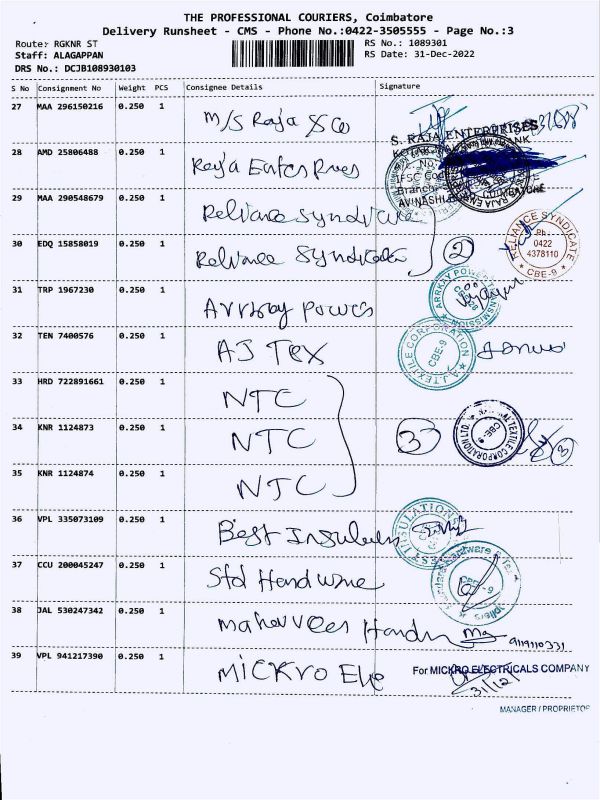 THE PROFESSIONAL COURIERS, Coimbatore
Delivery Runsheet - CMS - Phone No.:0422-3505555 - Page No.:3
Route: RGKNR ST
RS No.: 1089301
Staff: ALAGAPPAN
RS Date: 31-Dec-2022
DRS No.: DCJB108930103
S No Consignment No Weight PCS Consignee Details Signature
27 MAA 296150216 0.250 1 M/S Raja & Co
S. RAJA ENTERPRISES
28 AMD 25806488 0.250 1 Raja Enter Prises
29 MAA 290548679 0.250 1 Reliance Syndicate
30 EDQ 15858019 0.250 1 Reliance Syndicate 2
RELIANCE SYNDICATE
Ph:
0422
4378110
CBE-9
31 TRP 1967230 0.250 1 Arrkay Powers
ARRKAY POWER TRANSMISSION
32 TEN 7400576 0.250 1 AJ Tex
A.J.TEXTILE CORPORATION
CBE-9
33 HRD 722891661 0.250 1 NTC
34 KNR 1124873 0.250 1 NTC 3 3
TEXTILE CORPORATION LTD.
CBE-9
35 KNR 1124874 0.250 1 NTC
36 VPL 335073109 0.250 1 Best Insulation
BEST INSULATION
37 CCU 200045247 0.250 1 Std Hardware
Standard Hardware
CBE-9
38 JAL 530247342 0.250 1 Mahaveer
39 VPL 941217390 0.250 1 Mickro Ele
For MICKRO ELECTRICALS COMPANY
31/12/
MANAGER / PROPRIETOR